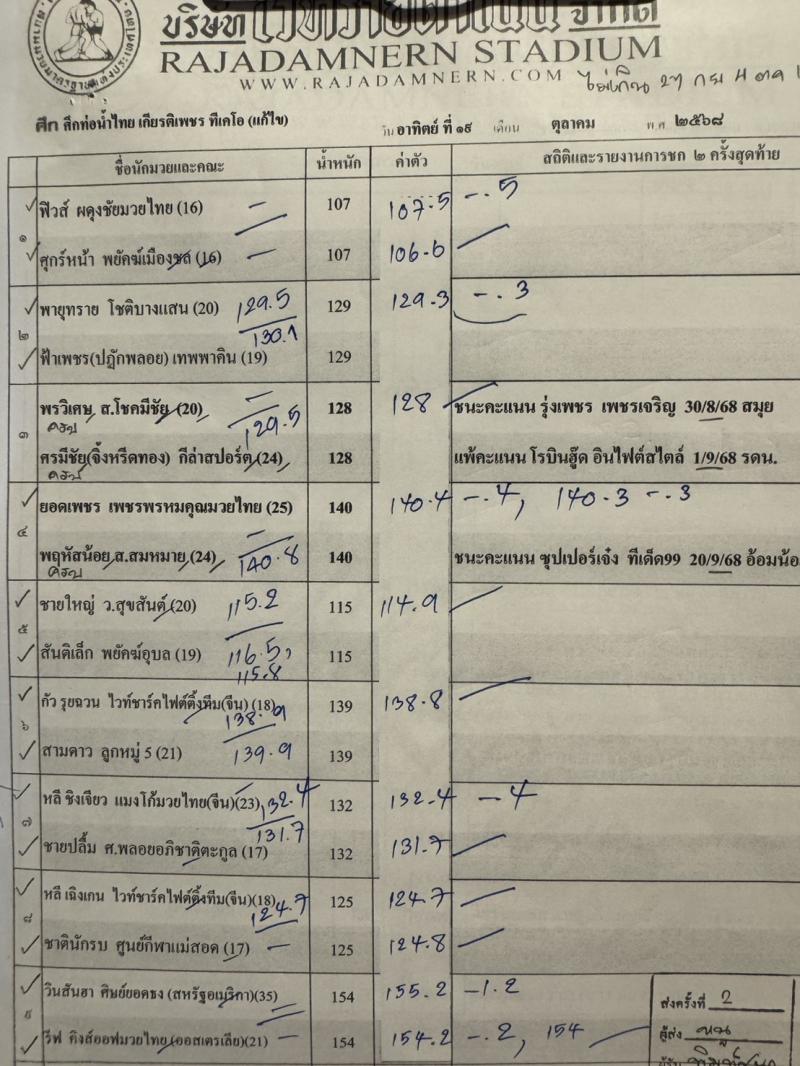 บริษัท เวทีราชดำเนิน จำกัด
RAJADAMNERN STADIUM
WWW.RAJADAMNERN.COM
ไม่เกิน 27 กรม
ศึก ศึกท่อน้ำไทย เกียรติเพชร ทีเคโอ (แก้ไข) วัน อาทิตย์ ที่ ๑๙ เดือน ตุลาคม พ ศ ๒๕๖๘
ชื่อนักมวยและคณะ น้ำหนัก ค่าตัว สถิติและรายงานการชก ๒ ครั้งสุดท้าย
๑
ฟิวส์ ผดุงชัยมวยไทย (16) 107 107.5 -.5
ศุกร์หน้า พยัคฆ์เมืองชล (16) 107 106.6
๒
พายุทราย โชติบางแสน (20) 129.5 129 129.3 -.3
130.1
ฟ้าเพชร(ปฏักพลอย) เทพพาคิน (19) 129
๓
พรวิเศษ ส.โชคมีชัย (20) 128 128 ชนะคะแนน รุ่งเพชร เพชรเจริญ 30/8/68 สมุย
129.5
ศรมีชัย(จิ้งหรีดทอง) กีล่าสปอร์ต(24) 128 แพ้คะแนน โรบินฮู๊ด อินไฟต์สไตล์ 1/9/68 รดน.
๔
ยอดเพชร เพชรพรหมคุณมวยไทย (25) 140 140.4 -.4, 140.3 -.3
พฤหัสน้อย ส.สมหมาย (24) 140.8 140 ชนะคะแนน ซุปเปอร์เจ๋ง ทีเด็ด99 20/9/68 อ้อมน้อ
๕
ชายใหญ่ ว.สุขสันต์ (20) 115.2 115 114.9
สันติเล็ก พยัคฆ์อุบล (19) 116.5, 115
115.8
๖
กัว รุยฉวน ไวท์ชาร์คไฟต์ติ้งทีม(จีน) (18) 139 138.8
138.9
สามดาว ลูกหมู่ 5 (21) 139.9 139
๗
หลี ชิงเจียว แมงโก้มวยไทย(จีน)(23) 132.4 132 132.4 -.4
131.7
ชายปลื้ม ศ.พลอยอภิชาติตะกูล (17) 132 131.7
๘
หลี เฉิงเกน ไวท์ชาร์คไฟต์ติ้งทีม(จีน)(18) 125 124.7
124.7
ชาตินักรบ ศูนย์กีฬาแม่สอด (17) 125 124.8
๙
วินสันฮา ศิษย์ยอดธง (สหรัฐอเมริกา)(35) 154 155.2 -1.2
รีฟ คิงส์ออฟมวยไทย (ออสเตรเลีย)(21) 154 154.2 -.2, 154
ส่งครั้งที่ 2
ผู้ส่ง
ผู้รับ